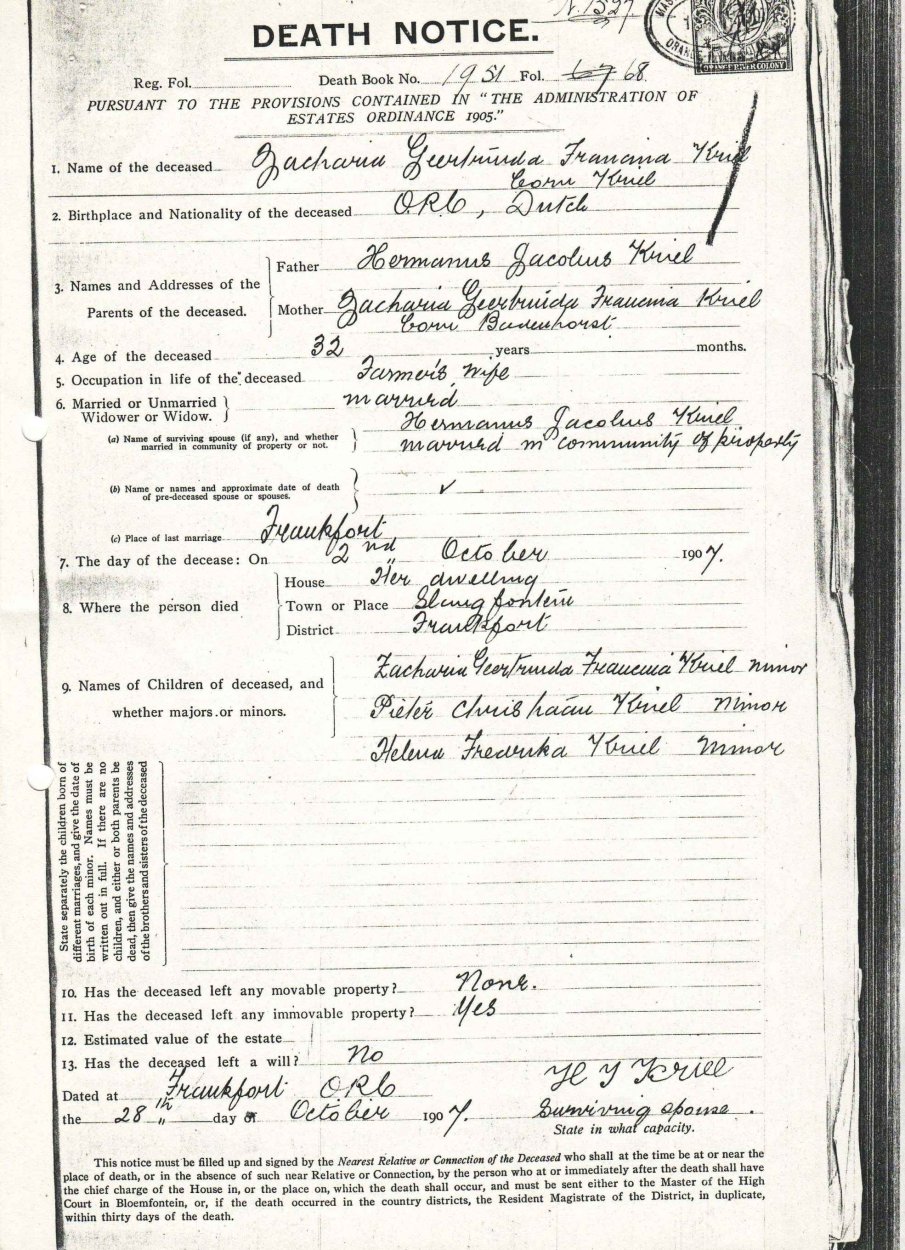 N. 1327
DEATH NOTICE.
ORANGE RIVER COLONY
Reg. Fol. Death Book No. 1951 Fol. 67 68
PURSUANT TO THE PROVISIONS CONTAINED IN "THE ADMINISTRATION OF
ESTATES ORDINANCE 1905."
1. Name of the deceased Zacharia Geertruida Francina Kriel
born Kriel
2. Birthplace and Nationality of the deceased O.R.C, Dutch
3. Names and Addresses of the
Parents of the deceased.
Father Hermanus Jacobus Kriel
Mother Zacharia Geertruida Francina Kriel
born Badenhorst
4. Age of the deceased 32 years months.
5. Occupation in life of the deceased Farmer's wife
6. Married or Unmarried
Widower or Widow.
married
(a) Name of surviving spouse (if any), and whether
married in community of property or not.
Hermanus Jacobus Kriel
married in community of property
(b) Name or names and approximate date of death
of pre-deceased spouse or spouses.
✓
(c) Place of last marriage Frankfort
7. The day of the decease: On 2nd October 1907.
8. Where the person died
House Her dwelling
Town or Place Slangfontein
District Frankfort
9. Names of Children of deceased, and
whether majors or minors.
Zacharia Geertruida Francina Kriel minor
Pieter Christiaan Kriel Minor
Helena Fredrika Kriel Minor
State separately the children born of
different marriages, and give the date of
birth of each minor. Names must be
written out in full. If there are no
children, and either or both parents be
dead, then give the names and addresses
of the brothers and sisters of the deceased
10. Has the deceased left any movable property? None.
11. Has the deceased left any immovable property? Yes
12. Estimated value of the estate
13. Has the deceased left a will? No
Dated at Frankfort ORC
the 28th day of October 1907.
H J Kriel
Surviving spouse.
State in what capacity.
This notice must be filled up and signed by the Nearest Relative or Connection of the Deceased who shall at the time be at or near the
place of death, or in the absence of such near Relative or Connection, by the person who at or immediately after the death shall have
the chief charge of the House in, or the place on, which the death shall occur, and must be sent either to the Master of the High
Court in Bloemfontein, or, if the death occurred in the country districts, the Resident Magistrate of the District, in duplicate,
within thirty days of the death.